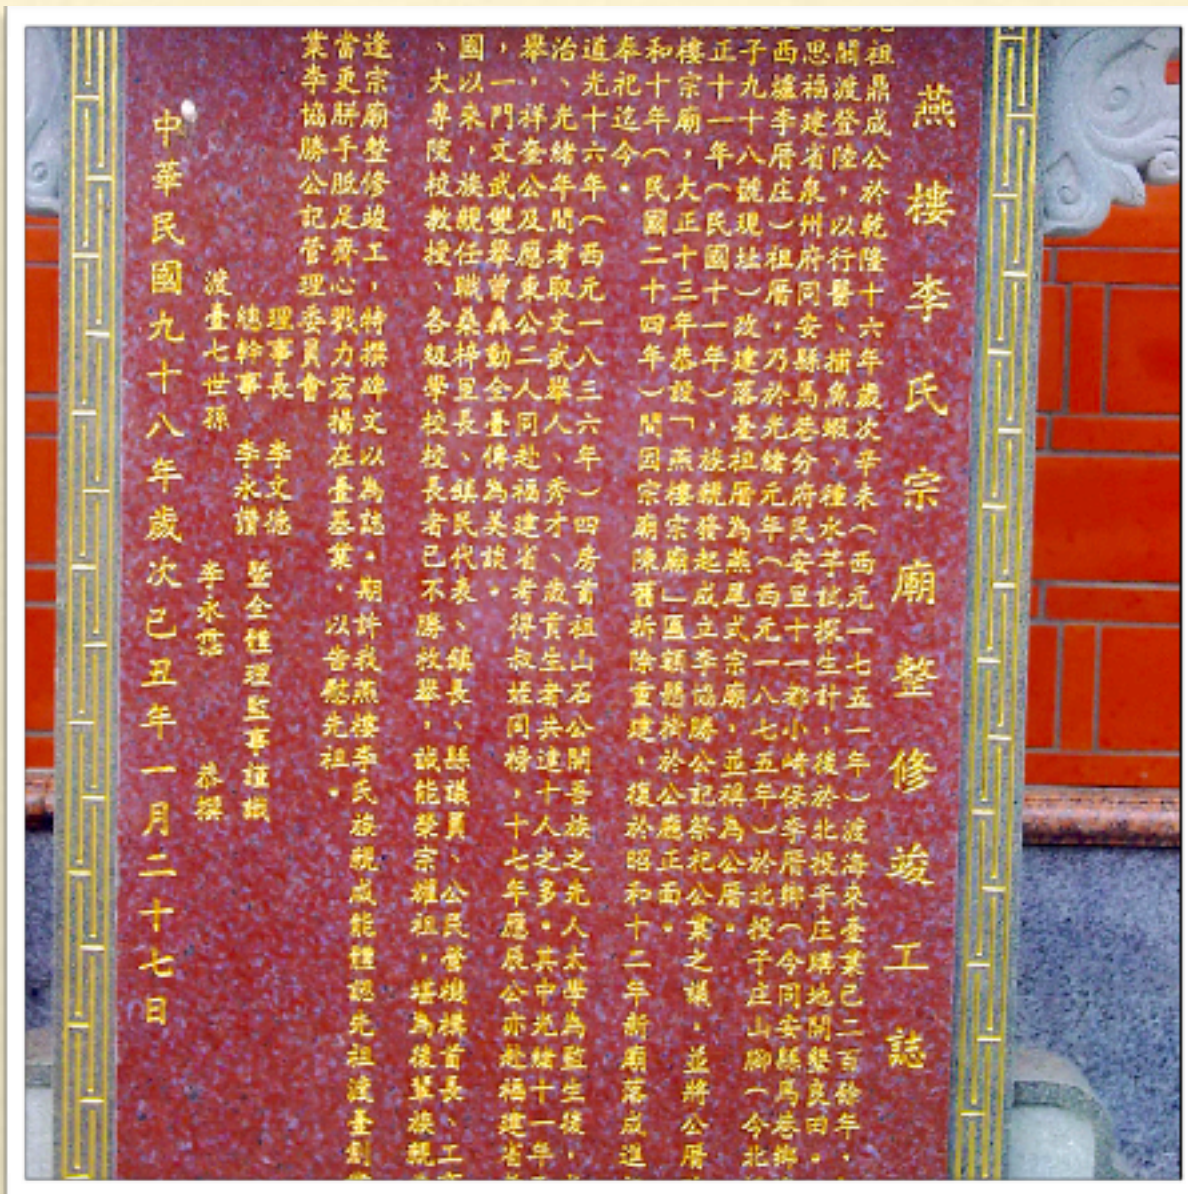 燕樓李氏宗廟整修竣工誌
祖鼎成公於乾隆十六年歲次辛未（西元一七五一年）渡海來臺業已二百餘年、
關渡登陸，以行醫、捕魚蝦、種水芋試探生計，後於北投子庄購地開墾良田。
思福建省泉州府同安縣馬巷分府民安里十一都小崎保李厝鄉（今同安縣馬巷鄉
西爐李厝庄）祖厝，乃於光緒元年（西元一八七五年）於北投子庄山腳（今北
子九十八號現址）改建落臺祖厝為燕尾式宗廟，並稱為公厝。
正十一年（民國十一年），族親發起成立李協勝公記祭祀公業之議，並將公厝
樓宗廟，大正十三年恭設「燕樓宗廟」匾額懸掛於公廳正面。
和十年（民國二十四年）間因宗廟陳舊拆除重建，復於昭和十二年新廟落成進
奉祀迄今。
道光十六年（西元一八三六年）四房首祖山石公開吾族之先人太學為監生後，
治、光緒年間考取文武舉人、秀才、歲貢生者共達十人之多。其中光緒十一年
舉，祥奎公及應東公二人同赴福建省考得叔姪同榜，十七年應辰公亦赴福建省
，一門文武雙舉曾轟動全臺傳為美談。
國以來，族親任職桑梓里長、鎮民代表、鎮長、縣議員、公民營機構首長、工
、大專院校教授、各級學校校長者已不勝枚舉，誠能榮宗耀祖，堪為後輩族親
逢宗廟整修竣工，特撰碑文以為誌。期許我燕樓李氏族親咸能體認先祖渡臺創
當更胼手胝足齊心戮力宏揚在臺基業，以告慰先祖。
業李協勝公記管理委員會
理事長 李文德
總幹事 李永 暨全體理監事謹識
渡臺七世孫 李永 恭撰
中華民國九十八年歲次己丑年一月二十七日